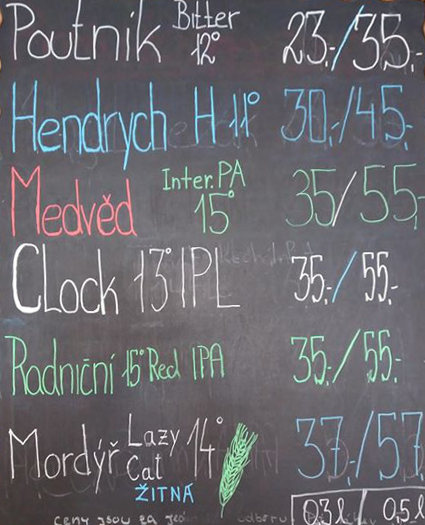 Poutník Bitter 12° 23,-/35,-
Hendrych H 11° 30,-/45,-
Medvěd Inter. PA 15° 35/55,-
CLock 13° IPL 35,-/55,-
Radniční 15° Red IPA 35,-/55,-
Mordýř Lazy Cat 14° 37,-/57,-
ŽITNÁ
0,3 l / 0,5 l
ceny jsou za